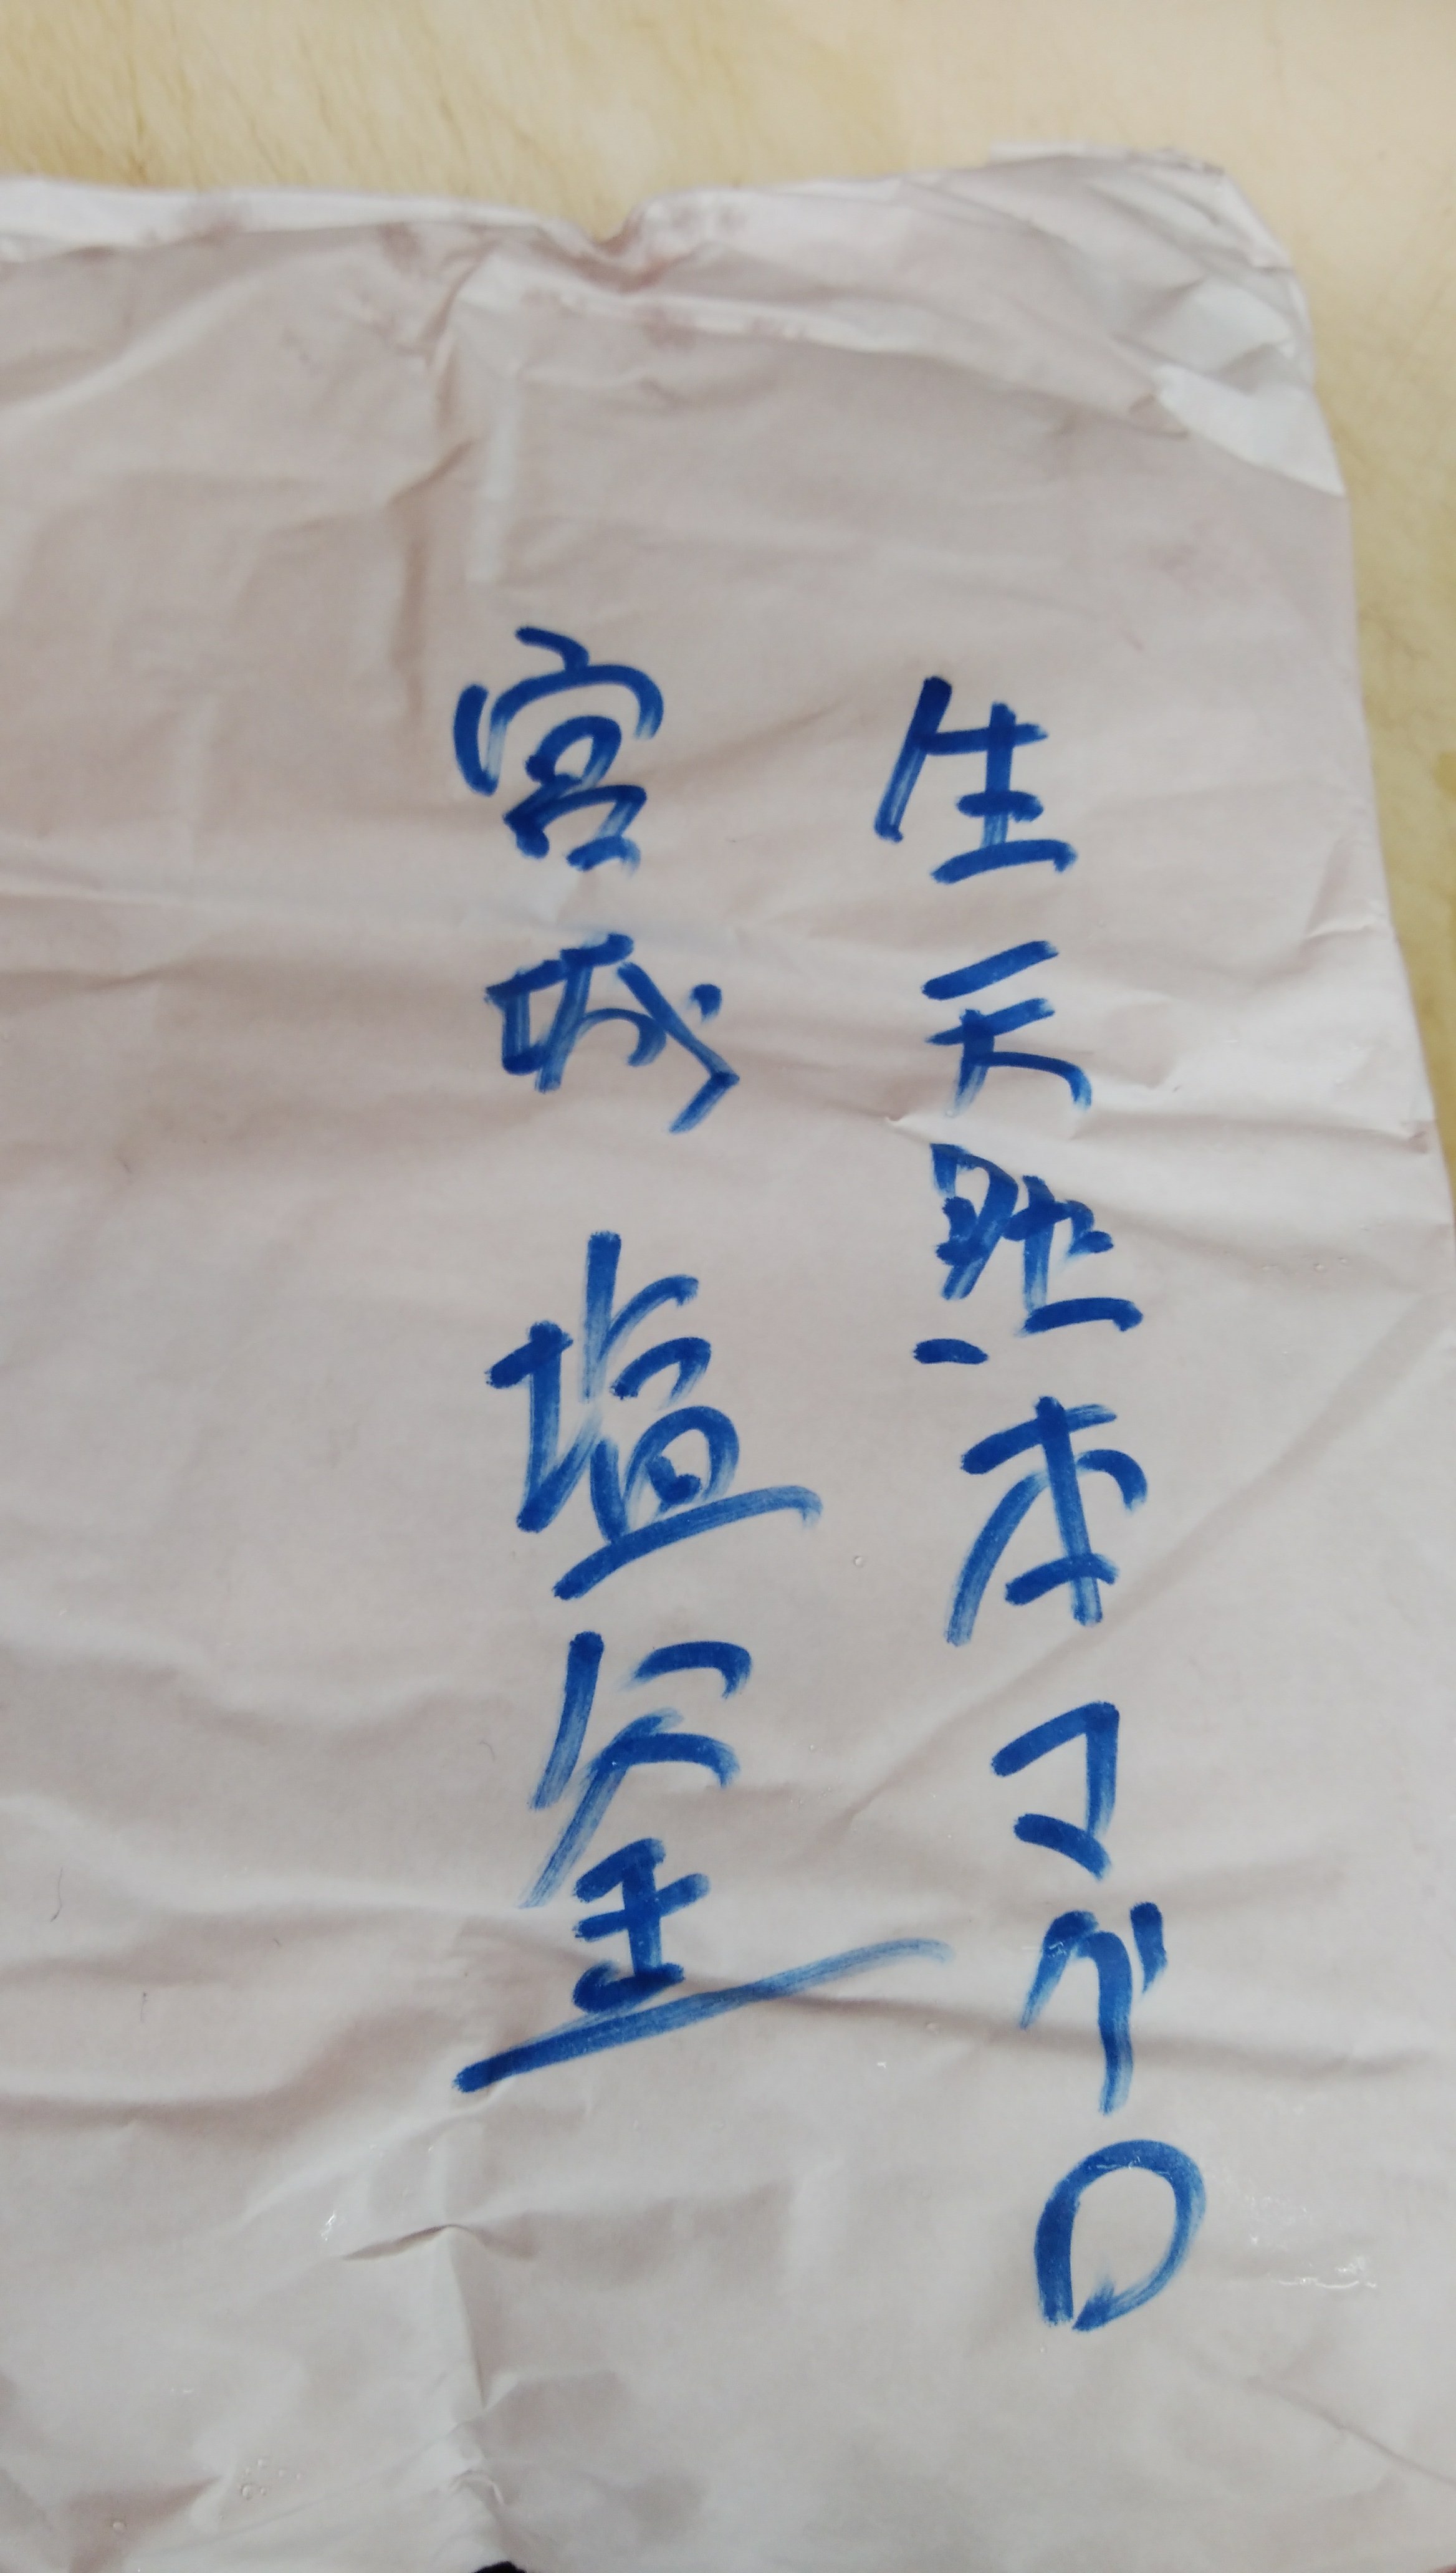 生天然本マグロ
宮城 塩釜